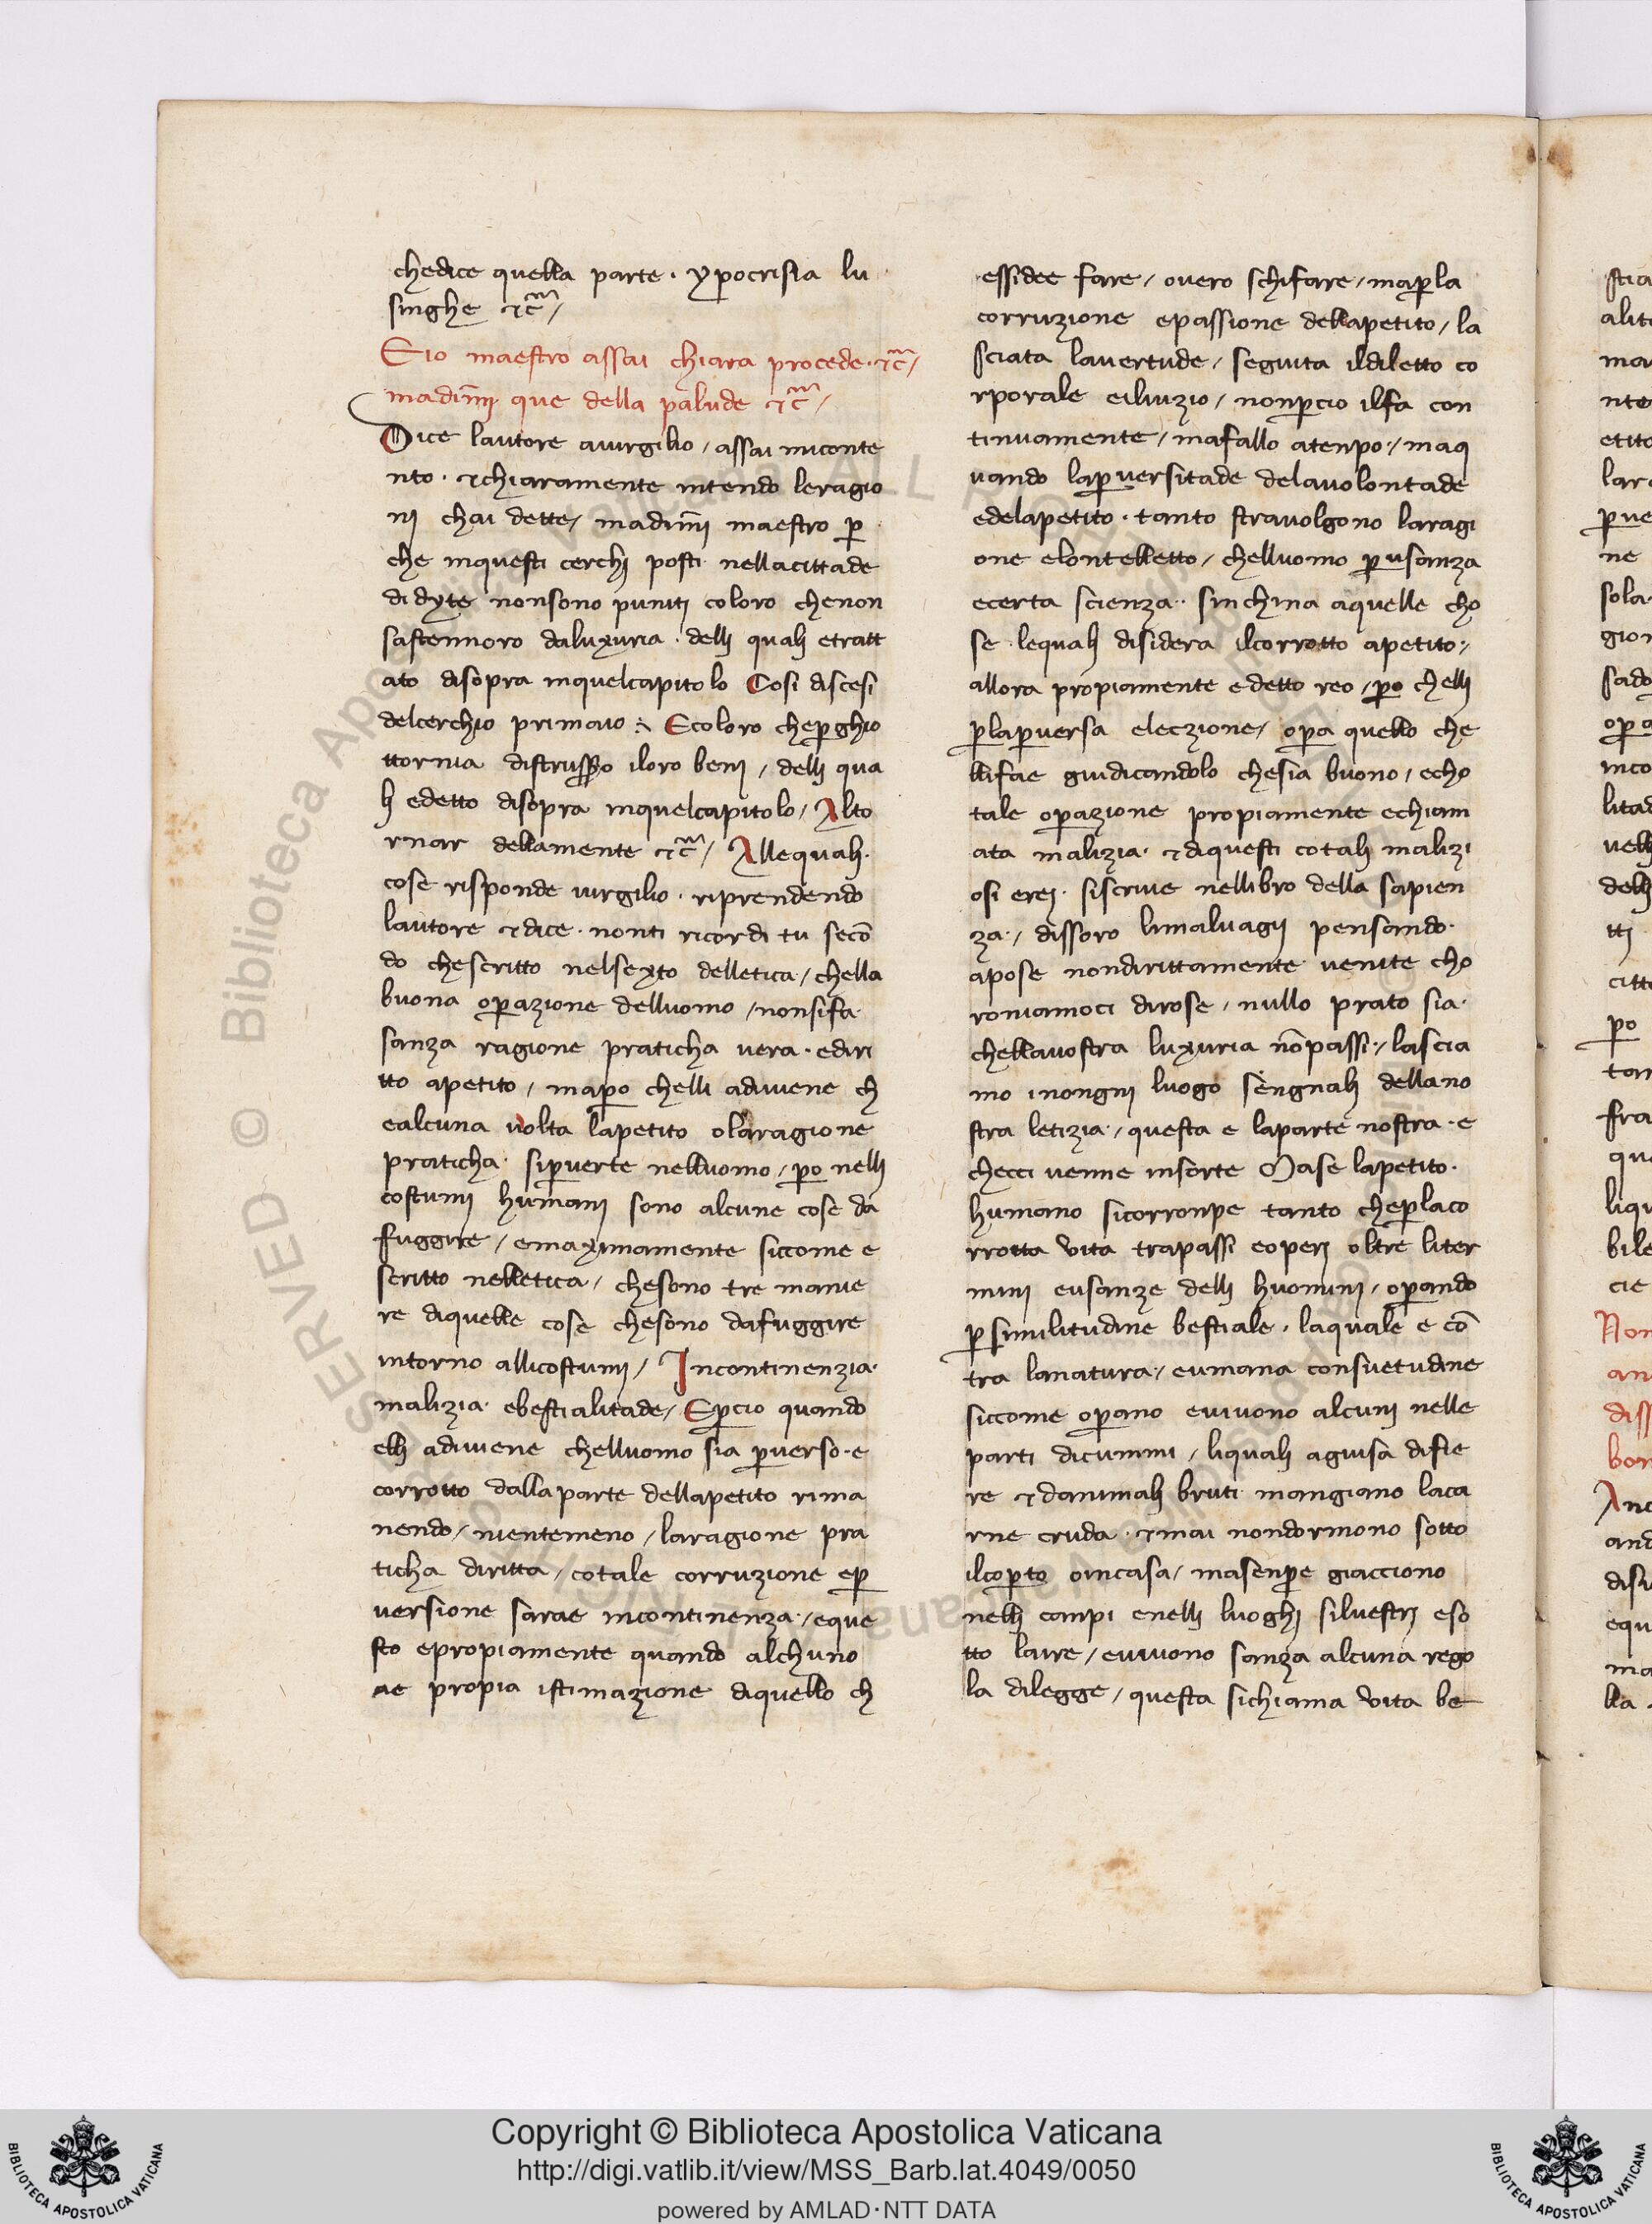 chedice quella parte · ypocrisia lu
singhe ⁊c̃ /
Eio maestro assai chiara procede · ⁊c̃ /
madim̃i que della palude ⁊c̃ /
Dice lautore auirgilio / assai miconte
nto · ⁊chiaramente intendo leragio
nj chai dette / madim̃i maestro ꝑ
che inquesti cerchj posti nellacittade
di dyte nonsono punitj coloro chenon
sastennoro daluxuria · dellj qualj etratt
ato disopra inquelcapitolo Cosi discesi
delcerchio primaio ·/· Ecoloro cheꝑghio
ttornia distrusso iloro benj / dellj qua
lj edetto disopra inquelcapitolo / Alto
rnar dellamente ⁊c̃ / Allequalj ·
cose risponde uirgilio · riprendendo
lautore ⁊dice · nonti ricordi tu secō
do chescritto nelsexto delletica / chella
buona oꝑazione delluomo / nonsifa
sanza ragione praticha uera · ediri
tto apetito / maꝑo chelli adiuiene ch
ealcuna uolta lapetito olaragione
praticha · siꝑuerte nelluomo / ꝑo nellj
costumj humanj sono alcune cose da
fuggire / emaximamente siccome e
scritto nelletica / chesono tre manie
re diquelle cose chesono dafuggire
intorno allicostumj / Incontinenzia ·
malizia · ebestialitade / Eꝑcio quando
ellj adiuiene chelluomo sia ꝑuerso · e
corrotto dallaparte dellapetito rima
nendo / nientemeno / laragione pra
ticha diritta / cotale corruzione eꝑ
uersione sarae incontinenza · / eque
sto epropiamente quando alchuno
ae propia istimazione diquello ch
essidee fare / ouero schifare / maꝑla
corruzione epassione dellapetito / la
sciata lauertude / seguita ildiletto co
rporale eiluizio / nonꝑcio ilfa con
tinuamente / mafallo atenpo · / maq
uando laꝑuersitade delauolontade
edelapetito · tanto strauolgono laragi
one elontelletto / chelluomo ꝑusanza
ecerta scienza · sinchina aquelle cho
se · lequalj disidera ilcorrotto apetito · /
allora propiamente edetto reo / ꝑo chellj
ꝑlaꝑuersa eleczione / oꝑa quello che
llifae giudicandolo chesia buono / echo
tale oꝑazione propiamente echiam
ata malizia · ⁊diquesti cotalj malizi
osi erej · siscriue nellibro della sapien
za · / dissoro limaluagij pensando ·
apose nondirittamente uenite cho
roniamoci dirose / nullo prato sia ·
chellauostra luxuria nōpassi · / lascia
mo inongnj luogo sengnalj dellano
stra letizia · / questa e laparte nostra · e
checci uenne insorte Mase lapetito ·
humano sicorronpe tanto cheꝑlaco
rrotta uita trapassi eoperj oltre liter
minj eusanze dellj huominj / oꝑando
ꝑ similitudine bestiale · laquale e cō
tra lanatura · / eumana consuetudine
siccome oꝑano eviuono alcunj nelle
parti dicummi / liqualj aguisa difie
re ⁊danimalj bruti mangiano laca
rne cruda · ⁊mai nondormono sotto
ilcoꝑto oincasa / masenꝑe giacciono
nellj canpi enellj luoghj siluestrj eso
tto laire / euiuono sanza alcuna rego
la dilegge / questa sichiama uita be
stia
alit
ma
nto
etito
lara
ꝑue
ne
sola
gior
sado
oꝑa
inco
litad
uellj
dellj
ttj
citt
ꝑo
tan
fra
que
liqu
bile
cie
Non
an
diss
bon
Anc
and
disi
equ
ma
lla
Biblioteca Apostolica Vaticana
Copyright © Biblioteca Apostolica Vaticana
http://digi.vatlib.it/view/MSS_Barb.lat.4049/0050
powered by AMLAD·NTT DATA
BIBLIOTECA APOSTOLICA VATICANA
BIBLIOTECA APOSTOLICA VATICANA